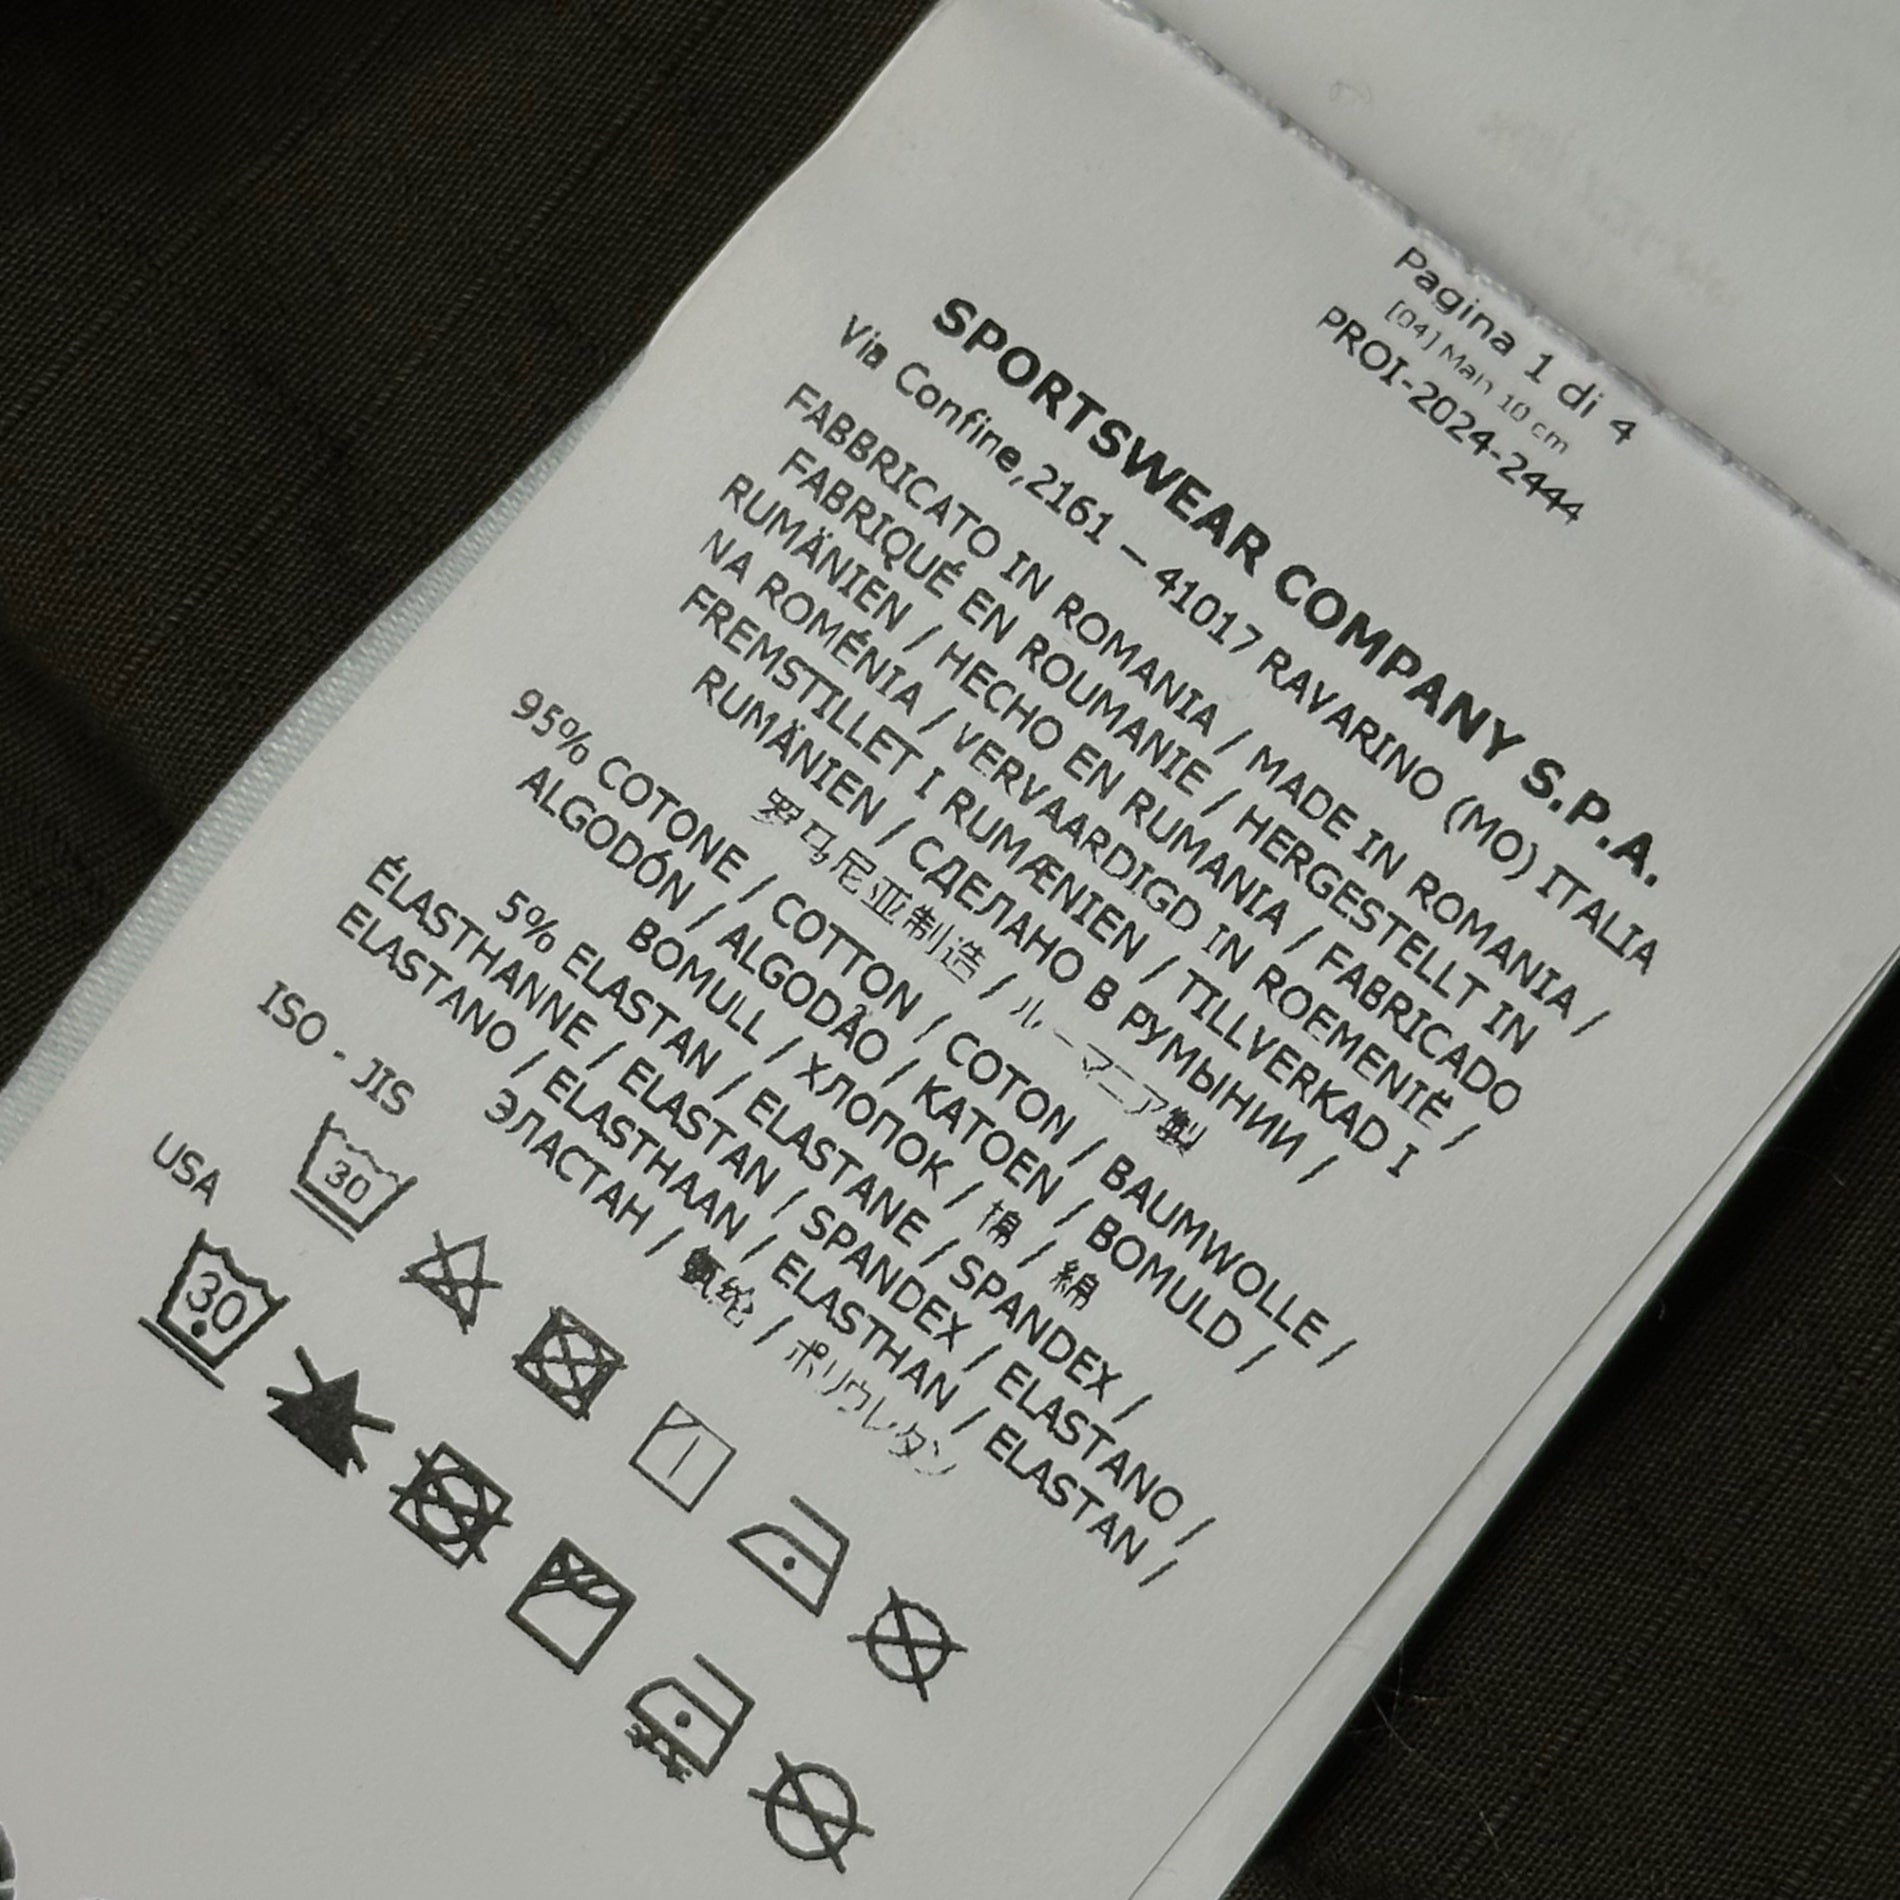 Pagina 1 di 4
[04] Man 10 cm
PROI-2024-2444
SPORTSWEAR COMPANY S.P.A.
Via Confine,2161 – 41017 RAVARINO (MO) ITALIA
FABBRICATO IN ROMANIA / MADE IN ROMANIA /
FABRIQUÉ EN ROUMANIE / HERGESTELLT IN
RUMÄNIEN / HECHO EN RUMANIA / FABRICADO
NA ROMÉNIA / VERVAARDIGD IN ROEMENIË /
FREMSTILLET I RUMÆNIEN / TILLVERKAD I
RUMÄNIEN / СДЕЛАНО В РУМЫНИИ /
罗马尼亚制造 / ルーマニア製
95% COTONE / COTTON / COTON / BAUMWOLLE /
ALGODÓN / ALGODÃO / KATOEN / BOMULD /
BOMULL / ХЛОПОК / 棉 / 綿
5% ELASTAN / ELASTANE / SPANDEX /
ÉLASTHANNE / ELASTAN / SPANDEX / ELASTANO /
ELASTANO / ELASTHAAN / ELASTHAN / ELASTAN /
ЭЛАСТАН / 氨纶 / ポリウレタン
ISO - JIS
30
USA
30